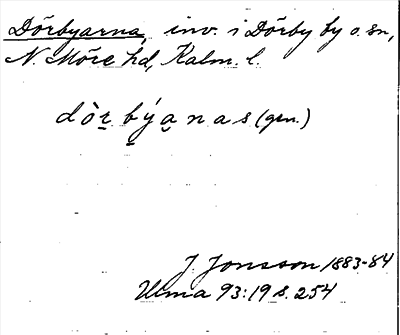 Dörbyarna, inv. i Dörby by o. sn,
N. Möre hd, Kalm. l.
dòṟ ḇýa̱nas (gen.)
J. Jonsson 1883-84
Ulma 93:19 s. 254